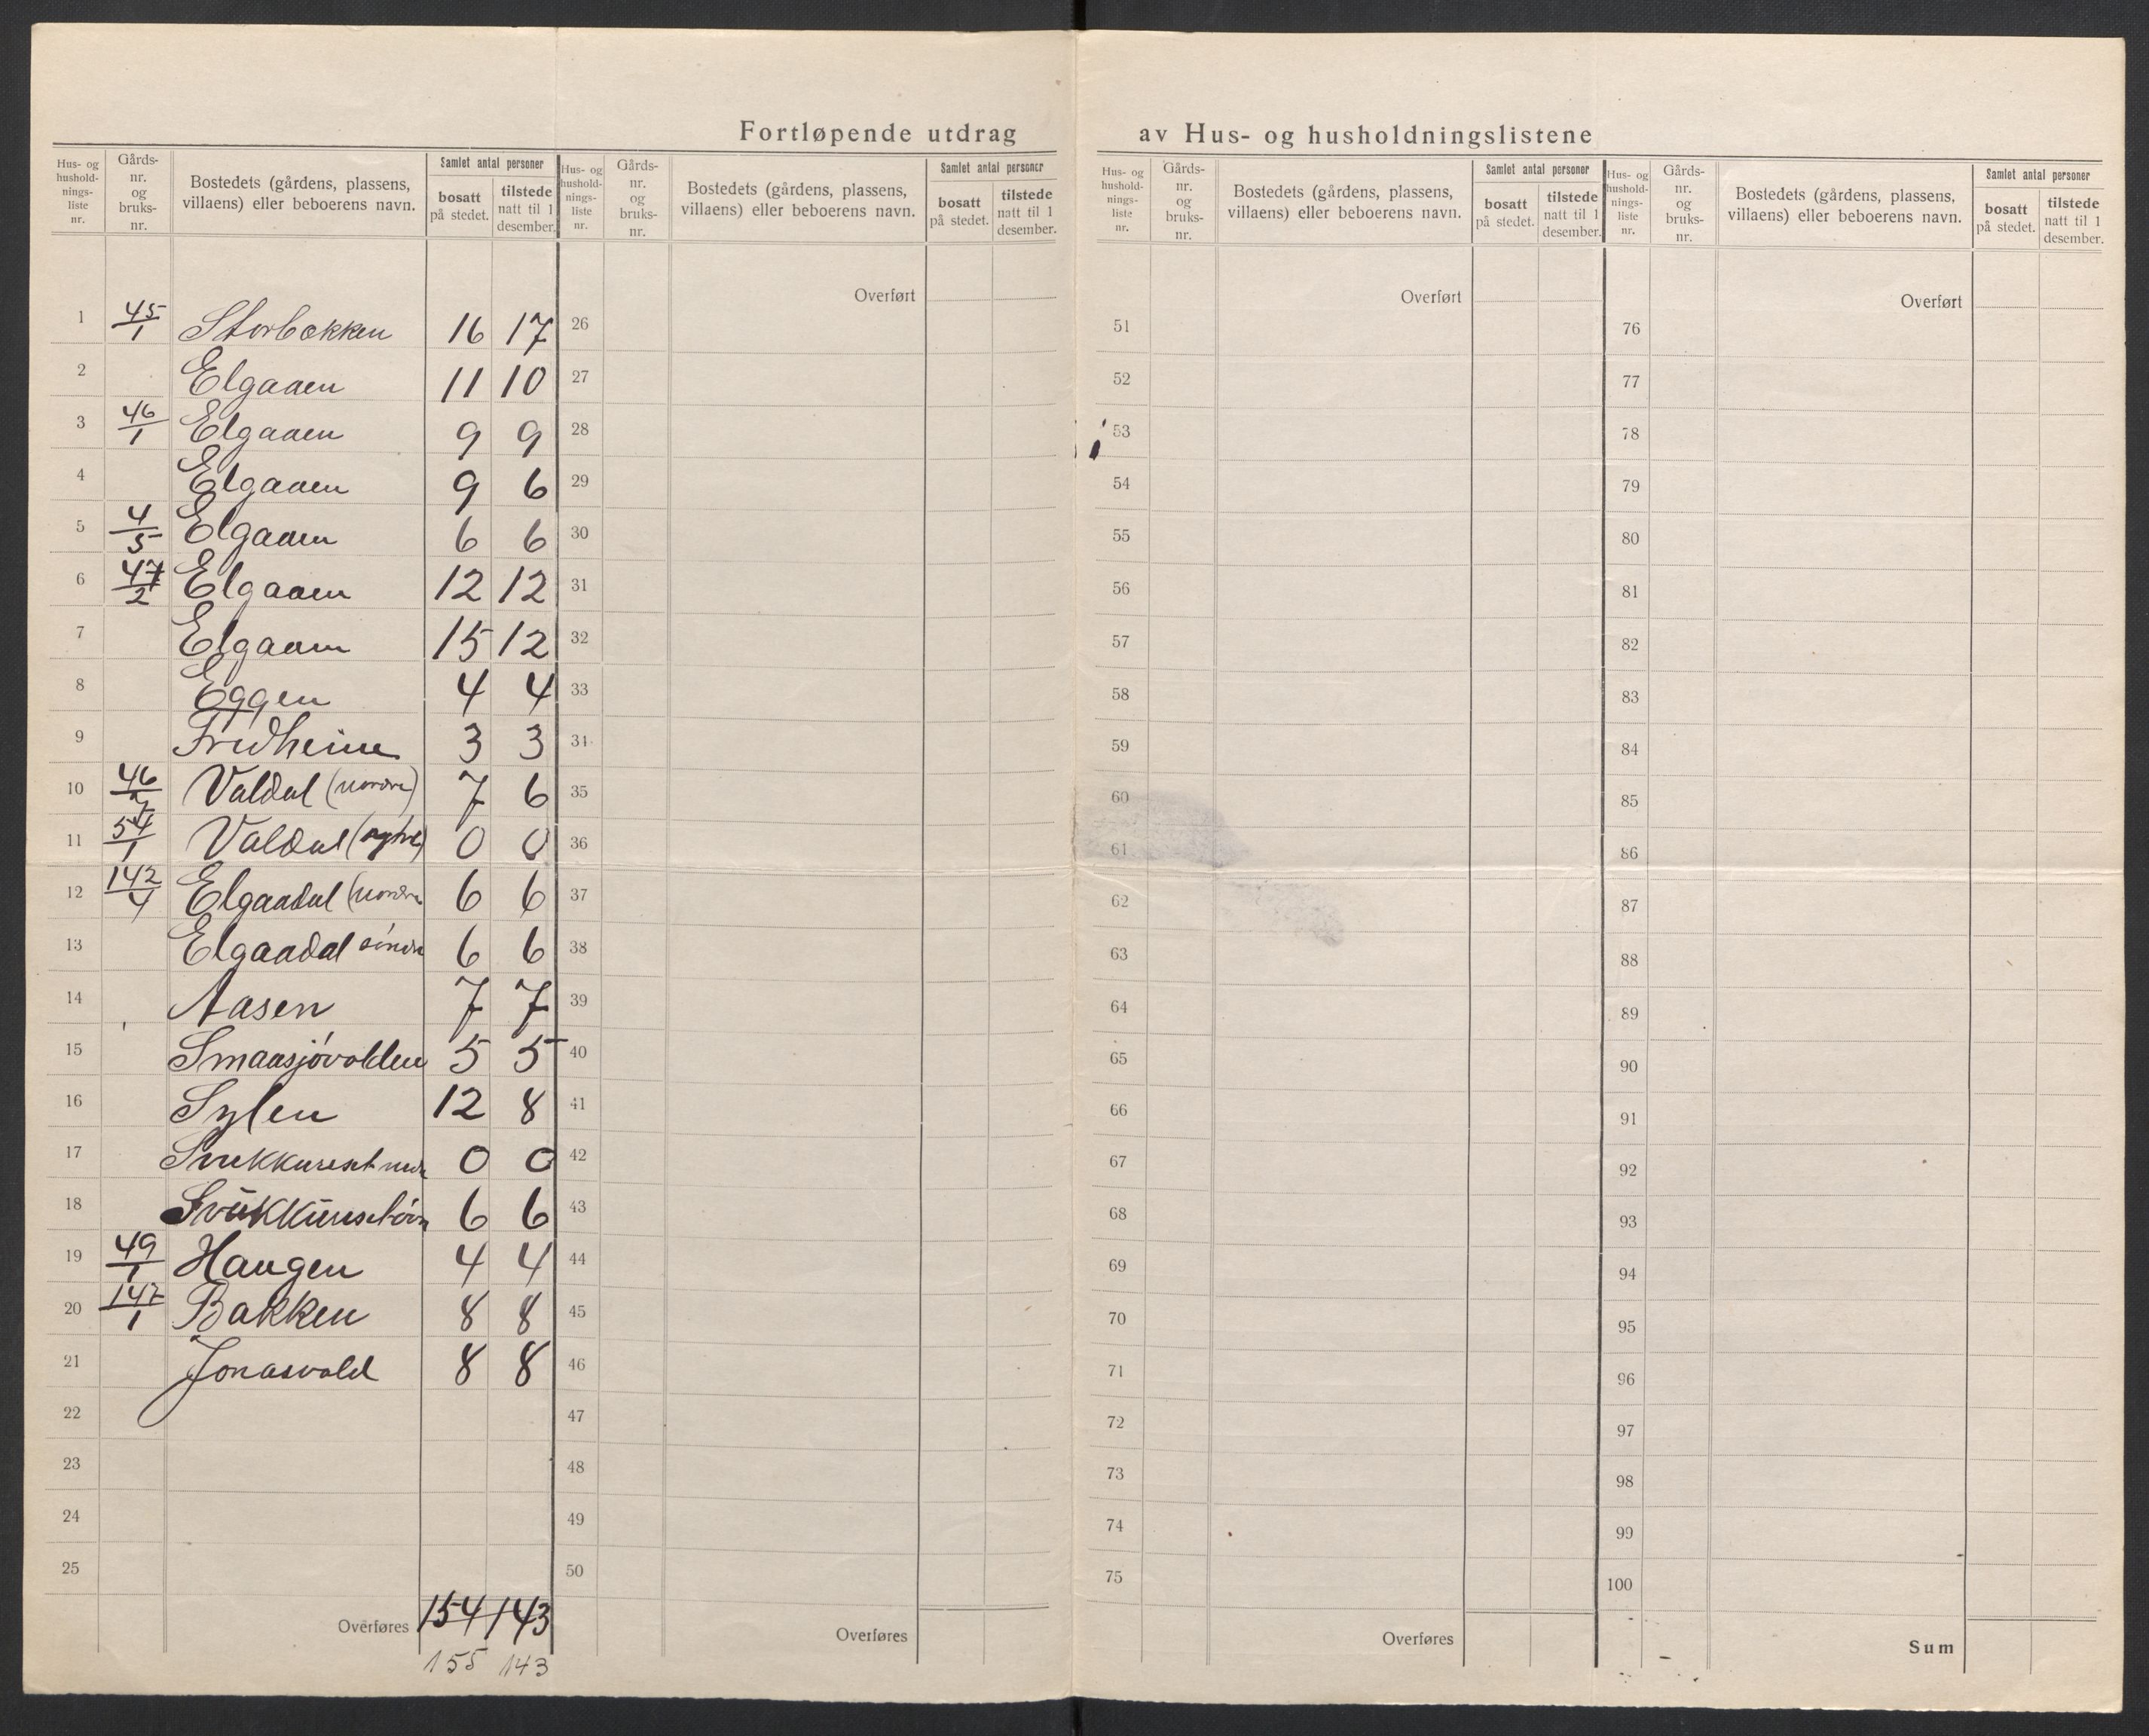 Fortløpende utdrag av Hus- og husholdningslistene
Hus- og hushold-nings-liste nr. Gårds-nr. og bruks-nr. Bostedets (gårdens, plassens, villaens) eller beboerens navn. Samlet antal personer bosatt på stedet. tilstede natt til 1 desember.
Hus- og hushold-nings-liste nr. Gårds-nr. og bruks-nr. Bostedets (gårdens, plassens, villaens) eller beboerens navn. Samlet antal personer bosatt på stedet. tilstede natt til 1 desember.
Hus- og hushold-nings-liste nr. Gårds-nr. og bruks-nr. Bostedets (gårdens, plassens, villaens) eller beboerens navn. Samlet antal personer bosatt på stedet. tilstede natt til 1 desember.
Hus- og hushold-nings-liste nr. Gårds-nr. og bruks-nr. Bostedets (gårdens, plassens, villaens) eller beboerens navn. Samlet antal personer bosatt på stedet. tilstede natt til 1 desember.
Overført Overført Overført
1 45/1 Storbekken 16 17 26 51 76
2 Elgaaen 11 10 27 52 77
3 46/1 Elgaaen 9 9 28 53 78
4 Elgaaen 9 6 29 54 79
5 4/5 Elgaaen 6 6 30 55 80
6 47/2 Elgaaen 12 12 31 56 81
7 Elgaaen 15 12 32 57 82
8 Eggen 4 4 33 58 83
9 Fredheim 3 3 34 59 84
10 46/ Valdal (nordre) 7 6 35 60 85
11 54/1 Valdal (sytre) 0 0 36 61 86
12 142/4 Elgaadal (nordre 6 6 37 62 87
13 Elgaadal söndre 6 6 38 63 88
14 Aasen 7 7 39 64 89
15 Smaasjövolden 5 5 40 65 90
16 Sylen 12 8 41 66 91
17 Svukkuriset 0 0 42 67 92
18 6 6 43 68 93
19 49/1 Haugen 4 4 44 69 94
20 147/1 Bakken 8 8 45 70 95
21 Jonasvold 8 8 46 71 96
22 47 72 97
23 48 73 98
24 49 74 99
25 50 75 100
Overføres 154 143 Overføres Overføres Sum
155 143